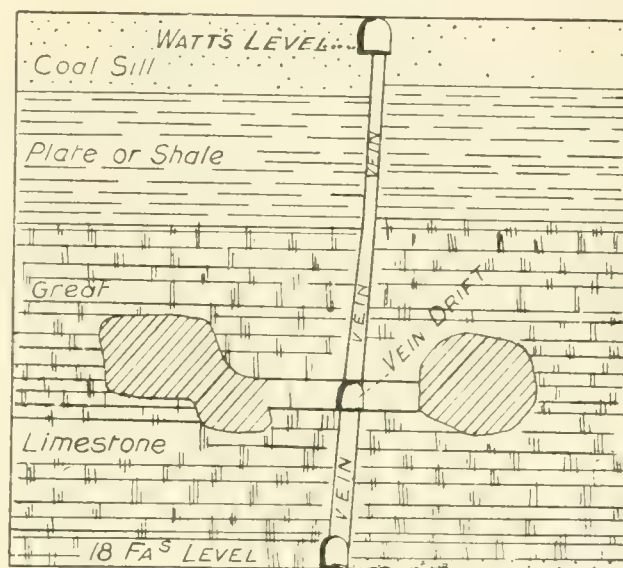 WATTS LEVEL...
Coal Sill
Plate or Shale
VEIN
Great
VEIN
VEIN DRIFT
Limestone
VEIN
18 FAS LEVEL